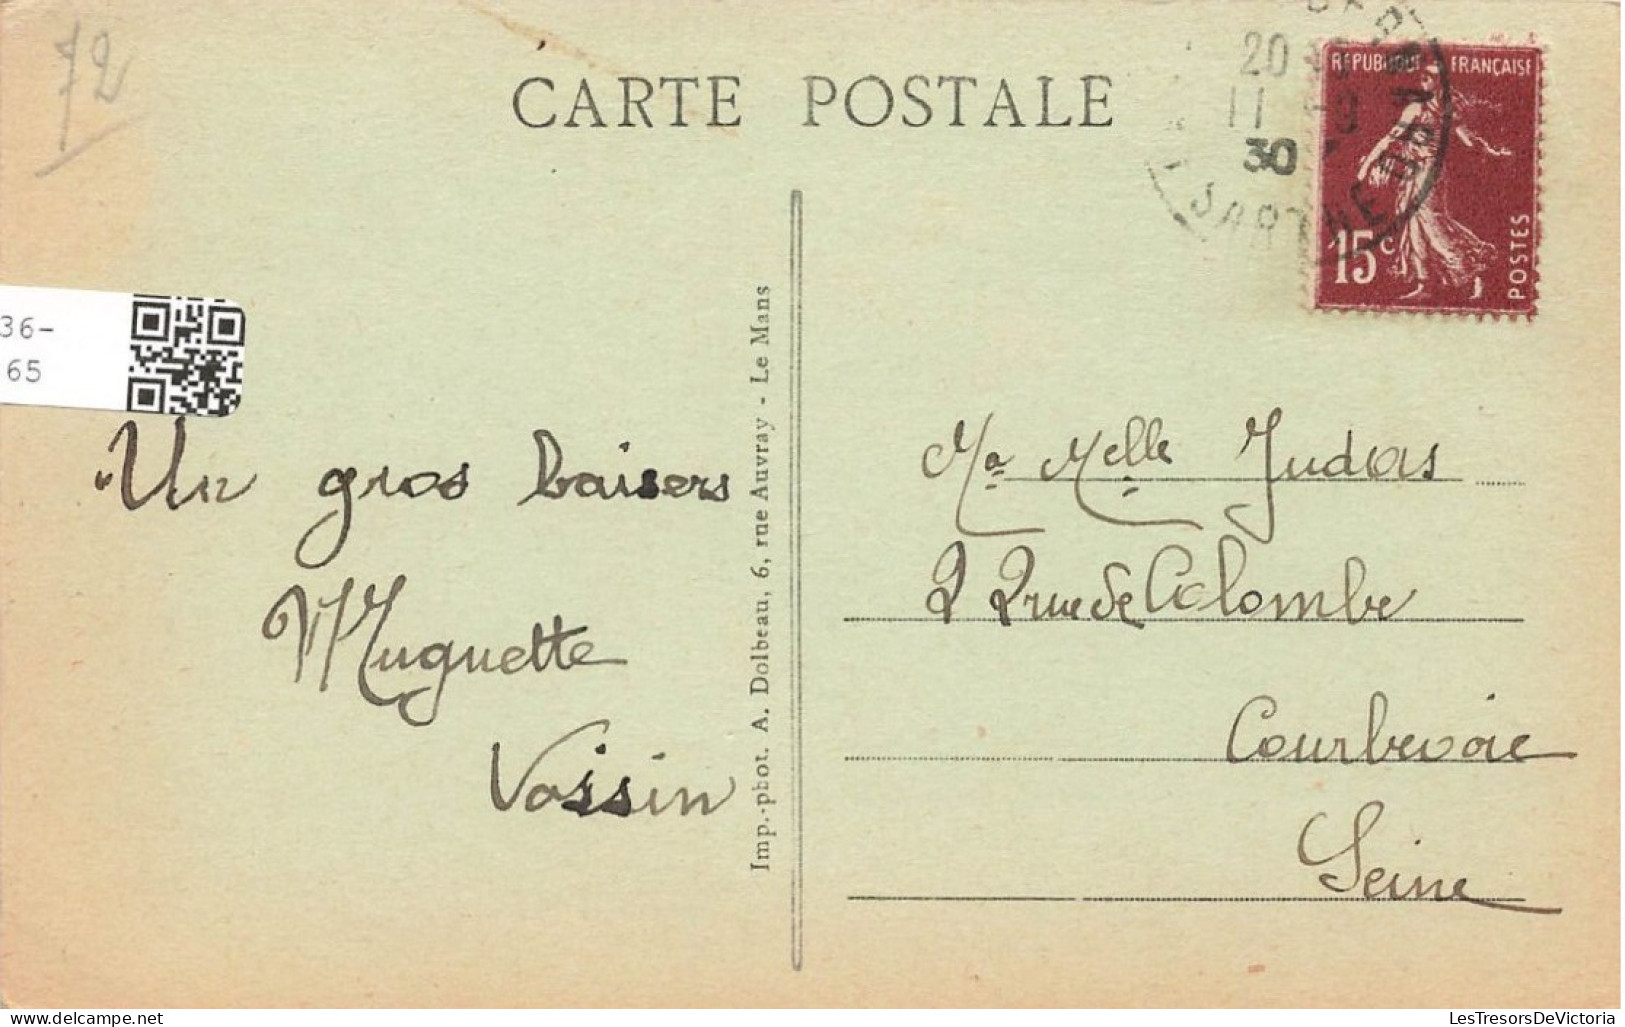 72
CARTE POSTALE
20
11
30
SARTHE
RÉPUBLIQUE FRANÇAISE
15c
POSTES
36-
65
Un gros baisers
Muguette
Voisin
Imp.-phot. A. Dolbeau, 6, rue Auvray - Le Mans
Melle Judas
2 2 rue de Colombe
Courbevoie
Seine
LesTresorsDeVictoria